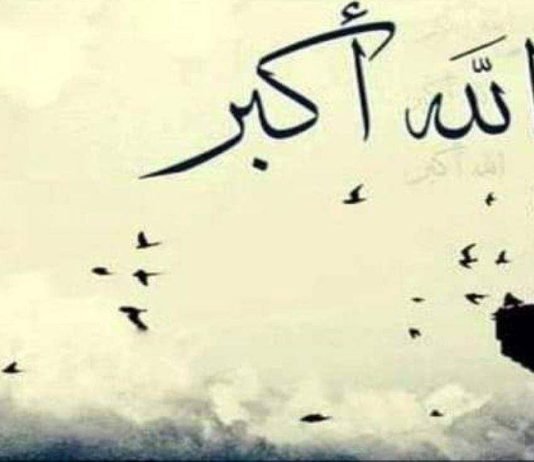 الله أكبر
الله أكبر